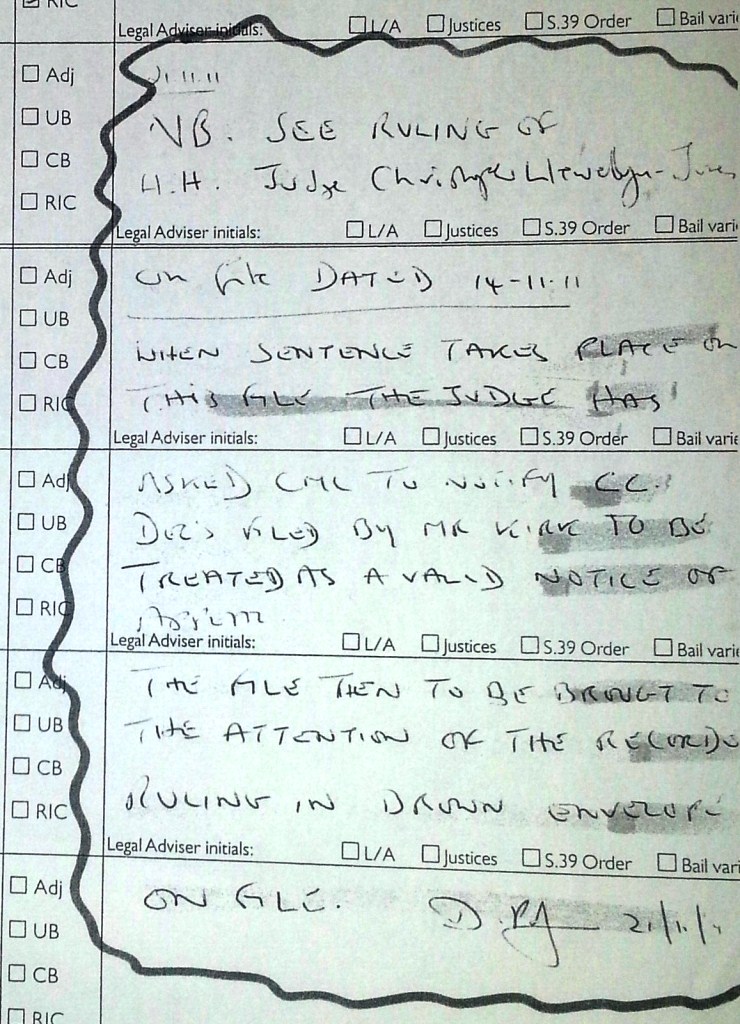 RIC
Legal Adviser initials: L/A Justices S.39 Order Bail vari
Adj 21.11.11
UB NB. SEE RULING OF
CB H.H. Judge Christopher Llewelyn-Jones
RIC
Legal Adviser initials: L/A Justices S.39 Order Bail vari
Adj on file DATED 14-11.11
UB
CB WHEN SENTENCE TAKES PLACE on
RIC THIS FILE THE JUDGE HAS
Legal Adviser initials: L/A Justices S.39 Order Bail varie
Adj ASKED CMC TO NOTIFY CC.
UB FILED BY MR KIRK TO BE
CB TREATED AS A VALID NOTICE OF
RIC
Legal Adviser initials: L/A Justices S.39 Order Bail vari
Adj THE FILE THEN TO BE BROUGT TO
UB THE ATTENTION OF THE RECORDE
CB
RIC RULING IN BROWN ENVELOPE
Legal Adviser initials: L/A Justices S.39 Order Bail vari
Adj ON FILE. 21/11/1
UB
CB
RIC